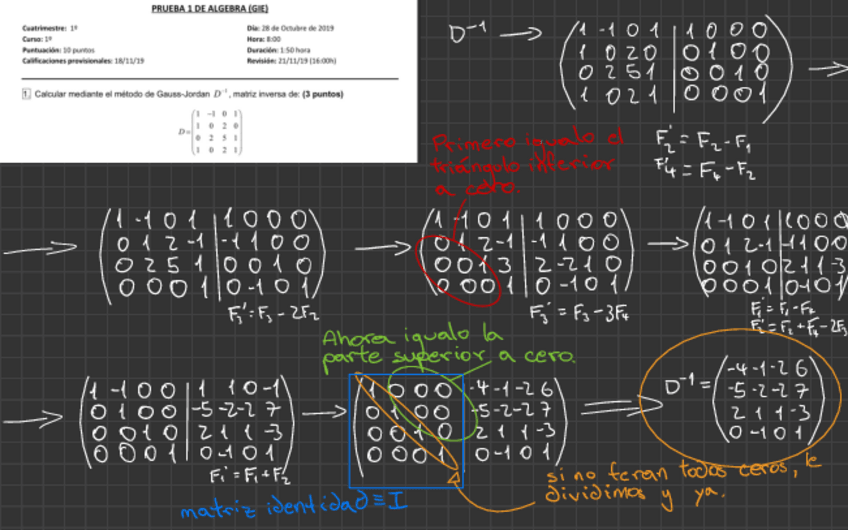 PRUEBA 1 DE ALGEBRA (GIE)
Cuatrimestre: 1º Día: 28 de Octubre de 2019
Curso: 1º Hora: 8:00
Puntuación: 10 puntos Duración: 1:50 hora
Calificaciones provisionales: 18/11/19 Revisión: 21/11/19 (16:00h)
1. Calcular mediante el método de Gauss-Jordan D⁻¹, matriz inversa de: (3 puntos)
1 -1 0 1
D= 1 0 2 0
0 2 5 1
1 0 2 1
D⁻¹ →
1 -1 0 1 | 1 0 0 0
1 0 2 0 | 0 1 0 0
0 2 5 1 | 0 0 1 0
1 0 2 1 | 0 0 0 1
→
F₂' = F₂ - F₁
F₄' = F₄ - F₂
Primero igualo el
triángulo inferior
a cero.
→
1 -1 0 1 | 1 0 0 0
0 1 2 -1 | -1 1 0 0
0 2 5 1 | 0 0 1 0
0 0 0 1 | 0 -1 0 1
F₃' = F₃ - 2F₂
→
1 -1 0 1 | 1 0 0 0
0 1 2 -1 | -1 1 0 0
0 0 1 3 | 2 -2 1 0
0 0 0 1 | 0 -1 0 1
F₃' = F₃ - 3F₄
→
1 -1 0 1 | 1 0 0 0
0 1 2 -1 | -1 1 0 0
0 0 1 0 | 2 1 1 -3
0 0 0 1 | 0 -1 0 1
F₁' = F₁ - F₄
F₂' = F₂ + F₄ - 2F₃
Ahora igualo la
parte superior a cero.
→
1 -1 0 0 | 1 1 0 -1
0 1 0 0 | -5 -2 -2 7
0 0 1 0 | 2 1 1 -3
0 0 0 1 | 0 -1 0 1
F₁' = F₁ + F₂
→
1 0 0 0 | -4 -1 -2 6
0 1 0 0 | -5 -2 -2 7
0 0 1 0 | 2 1 1 -3
0 0 0 1 | 0 -1 0 1
D⁻¹ =
-4 -1 -2 6
-5 -2 -2 7
2 1 1 -3
0 -1 0 1
matriz identidad ≡ I
si no feran todos ceros, le
dividimos y ya.